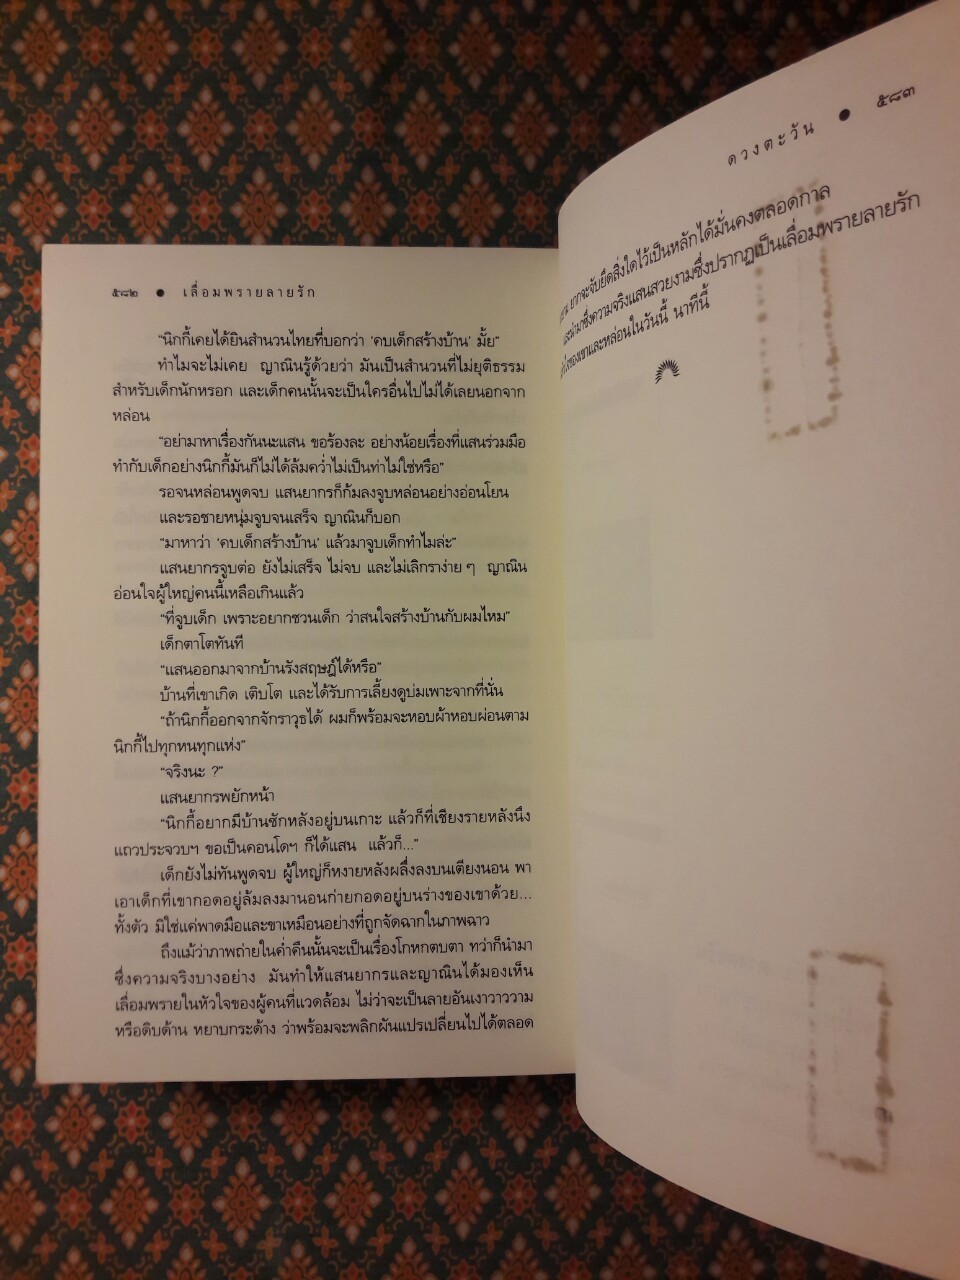 ๕๘๒ ● เลื่อมพรายลายรัก
“นิกกี้เคยได้ยินสำนวนไทยที่บอกว่า ‘คบเด็กสร้างบ้าน’ มั้ย”
ทำไมจะไม่เคย ญาณินรู้ด้วยว่า มันเป็นสำนวนที่ไม่ยุติธรรม
สำหรับเด็กนักหรอก และเด็กคนนั้นจะเป็นใครอื่นไปไม่ได้เลยนอกจาก
หล่อน
“อย่ามาหาเรื่องกันนะแสน ขอร้องละ อย่างน้อยเรื่องที่แสนร่วมมือ
ทำกับเด็กอย่างนิกกี้มันก็ไม่ได้ล้มคว่ำไม่เป็นท่าไม่ใช่หรือ”
รอจนหล่อนพูดจบ แสนยากรก็ก้มลงจูบหล่อนอย่างอ่อนโยน
และรอชายหนุ่มจูบจนเสร็จ ญาณินก็บอก
“มาหาว่า ‘คบเด็กสร้างบ้าน’ แล้วมาจูบเด็กทำไมล่ะ”
แสนยากรจูบต่อ ยังไม่เสร็จ ไม่จบ และไม่เลิกราง่าย ๆ ญาณิน
อ่อนใจผู้ใหญ่คนนี้เหลือเกินแล้ว
“ที่จูบเด็ก เพราะอยากชวนเด็ก ว่าสนใจสร้างบ้านกับผมไหม”
เด็กตาโตทันที
“แสนออกมาจากบ้านรังสฤษฎ์ได้หรือ”
บ้านที่เขาเกิด เติบโต และได้รับการเลี้ยงดูบ่มเพาะจากที่นั่น
“ถ้านิกกี้ออกจากจักราวุธได้ ผมก็พร้อมจะหอบผ้าหอบผ่อนตาม
นิกกี้ไปทุกหนทุกแห่ง”
“จริงนะ ?”
แสนยากรพยักหน้า
“นิกกี้อยากมีบ้านซักหลังอยู่บนเกาะ แล้วก็ที่เชียงรายหลังนึง
แถวประจวบฯ ขอเป็นคอนโดฯ ก็ได้แสน แล้วก็...”
เด็กยังไม่ทันพูดจบ ผู้ใหญ่ก็หงายหลังผลึ่งลงบนเตียงนอน พา
เอาเด็กที่เขากอดอยู่ล้มลงมานอนก่ายกอดอยู่บนร่างของเขาด้วย...
ทั้งตัว มิใช่แค่พาดมือและขาเหมือนอย่างที่ถูกจัดฉากในภาพฉาว
ถึงแม้ว่าภาพถ่ายในค่ำคืนนั้นจะเป็นเรื่องโกหกตบตา ทว่าก็นำมา
ซึ่งความจริงบางอย่าง มันทำให้แสนยากรและญาณินได้มองเห็น
เลื่อมพรายในหัวใจของผู้คนที่แวดล้อม ไม่ว่าจะเป็นลายอันเงาวาววาม
หรือดิบด้าน หยาบกระด้าง ว่าพร้อมจะพลิกผันแปรเปลี่ยนไปได้ตลอด
ดวงตะวัน ● ๕๘๓
ยากจะจับยึดสิ่งใดไว้เป็นหลักได้มั่นคงตลอดกาล
และนำมาซึ่งความจริงแสนสวยงามซึ่งปรากฏเป็นเลื่อมพรายลายรัก
ของเขาและหล่อนในวันนี้ นาทีนี้